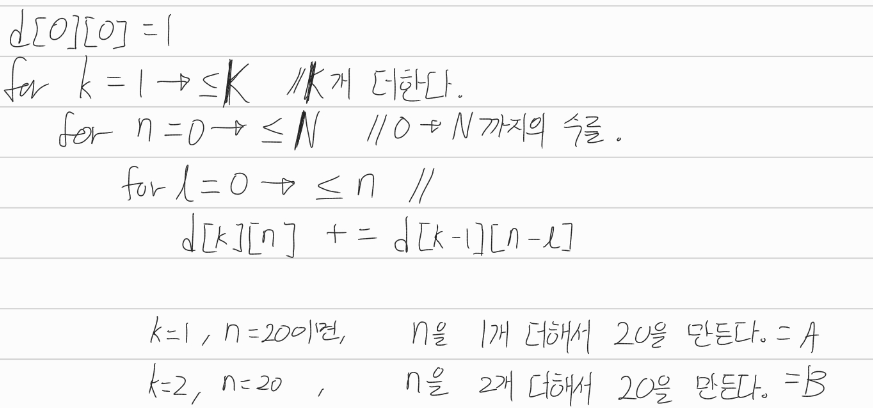 d[0][0] = 1
for k = 1 → ≤ K //K개 더한다.
for n = 0 → ≤ N //0 → N까지의 수를.
for l = 0 → ≤ n //
d[k][n] += d[k-1][n-l]
k=1, n=20이면, n을 1개 더해서 20을 만든다. = A
k=2, n=20, n을 2개 더해서 20을 만든다. = B